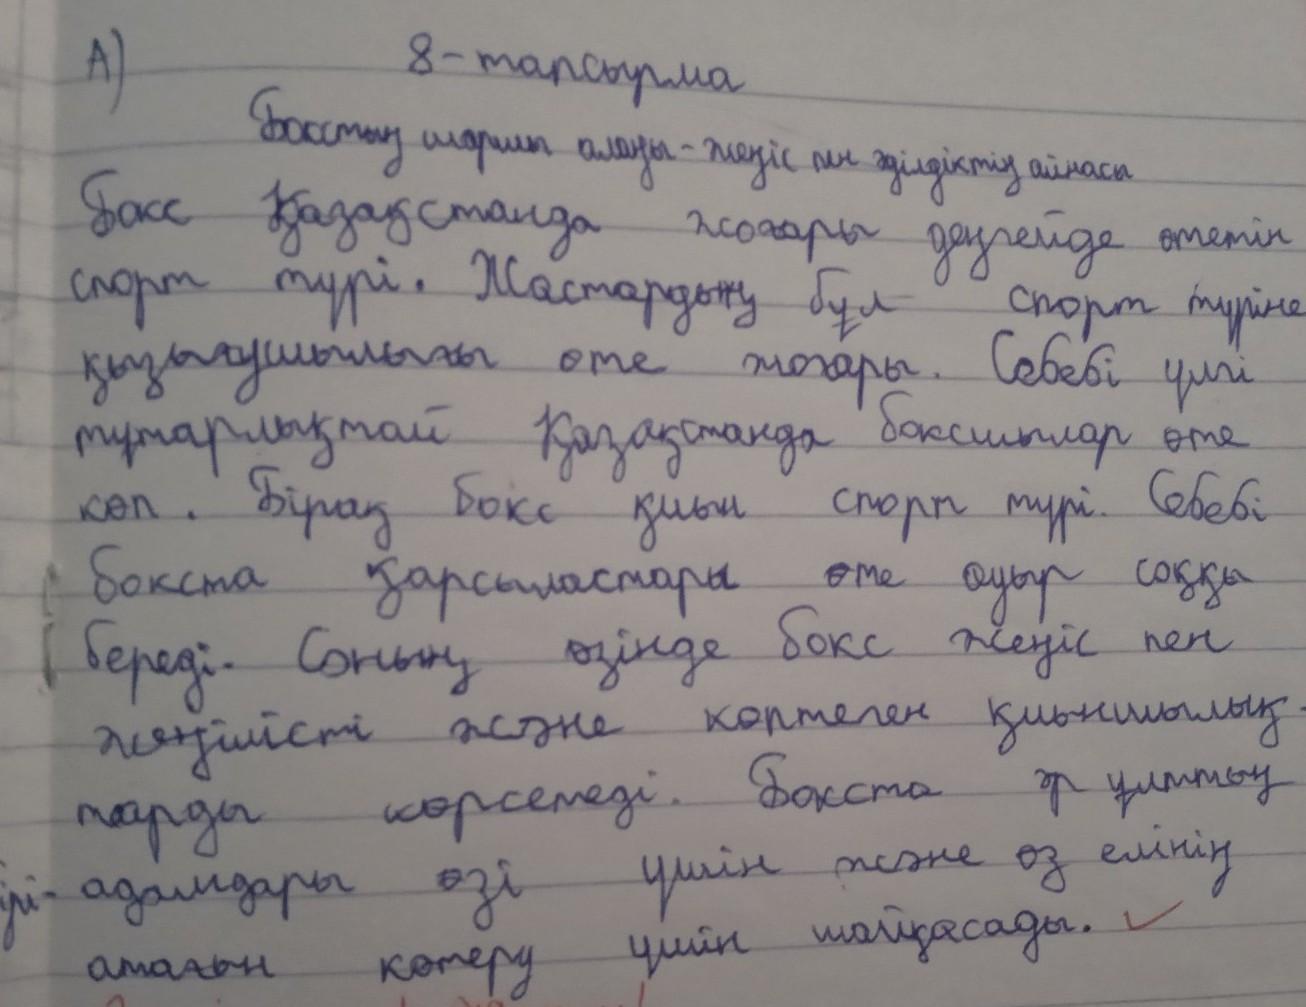 А) 8-тапсырма
Бокстың шаршы алаңы - жеңіс пен әділдіктің айнасы
Бокс Қазақстанда жоғары деңгейде өтетін
спорт түрі. Жастардың бұл спорт түріне
қызығушылығы өте жоғары. Себебі үлгі
тұтарлықтай Қазақстанда боксшылар өте
көп. Бірақ бокс қиын спорт түрі. Себебі
бокста қарсыластары өте ауыр соққы
береді. Соның өзінде бокс жеңіс пен
жеңілісті және көптеген қиыншылық-
тарды көрсетеді. Бокста әр ұлттың
адамдары өзі үшін және өз елінің
атағын көтеру үшін шайқасады.